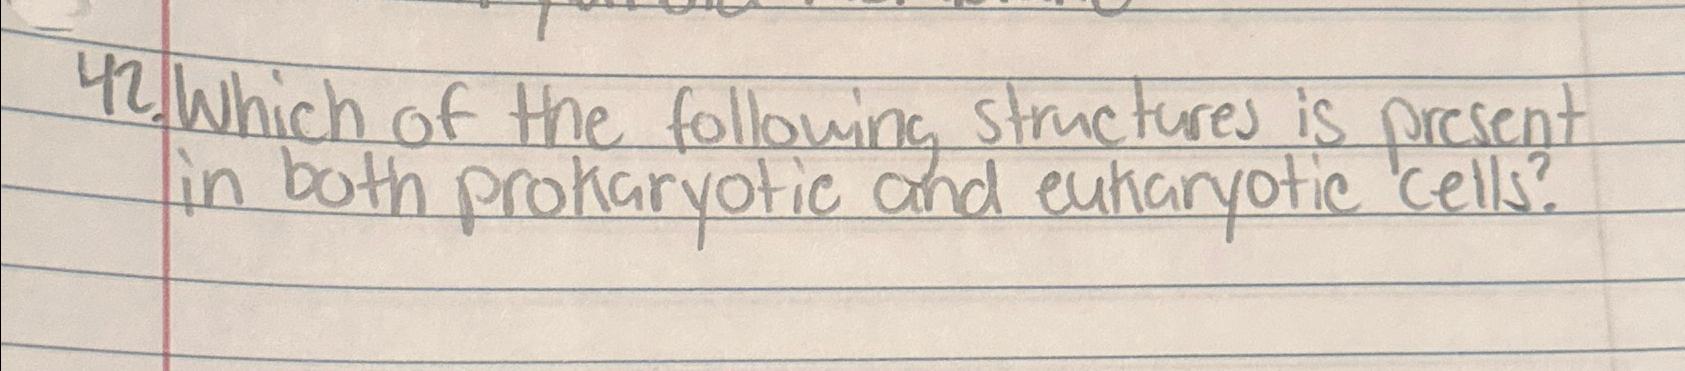 42. Which of the following structures is present
in both prokaryotic and eukaryotic cells?